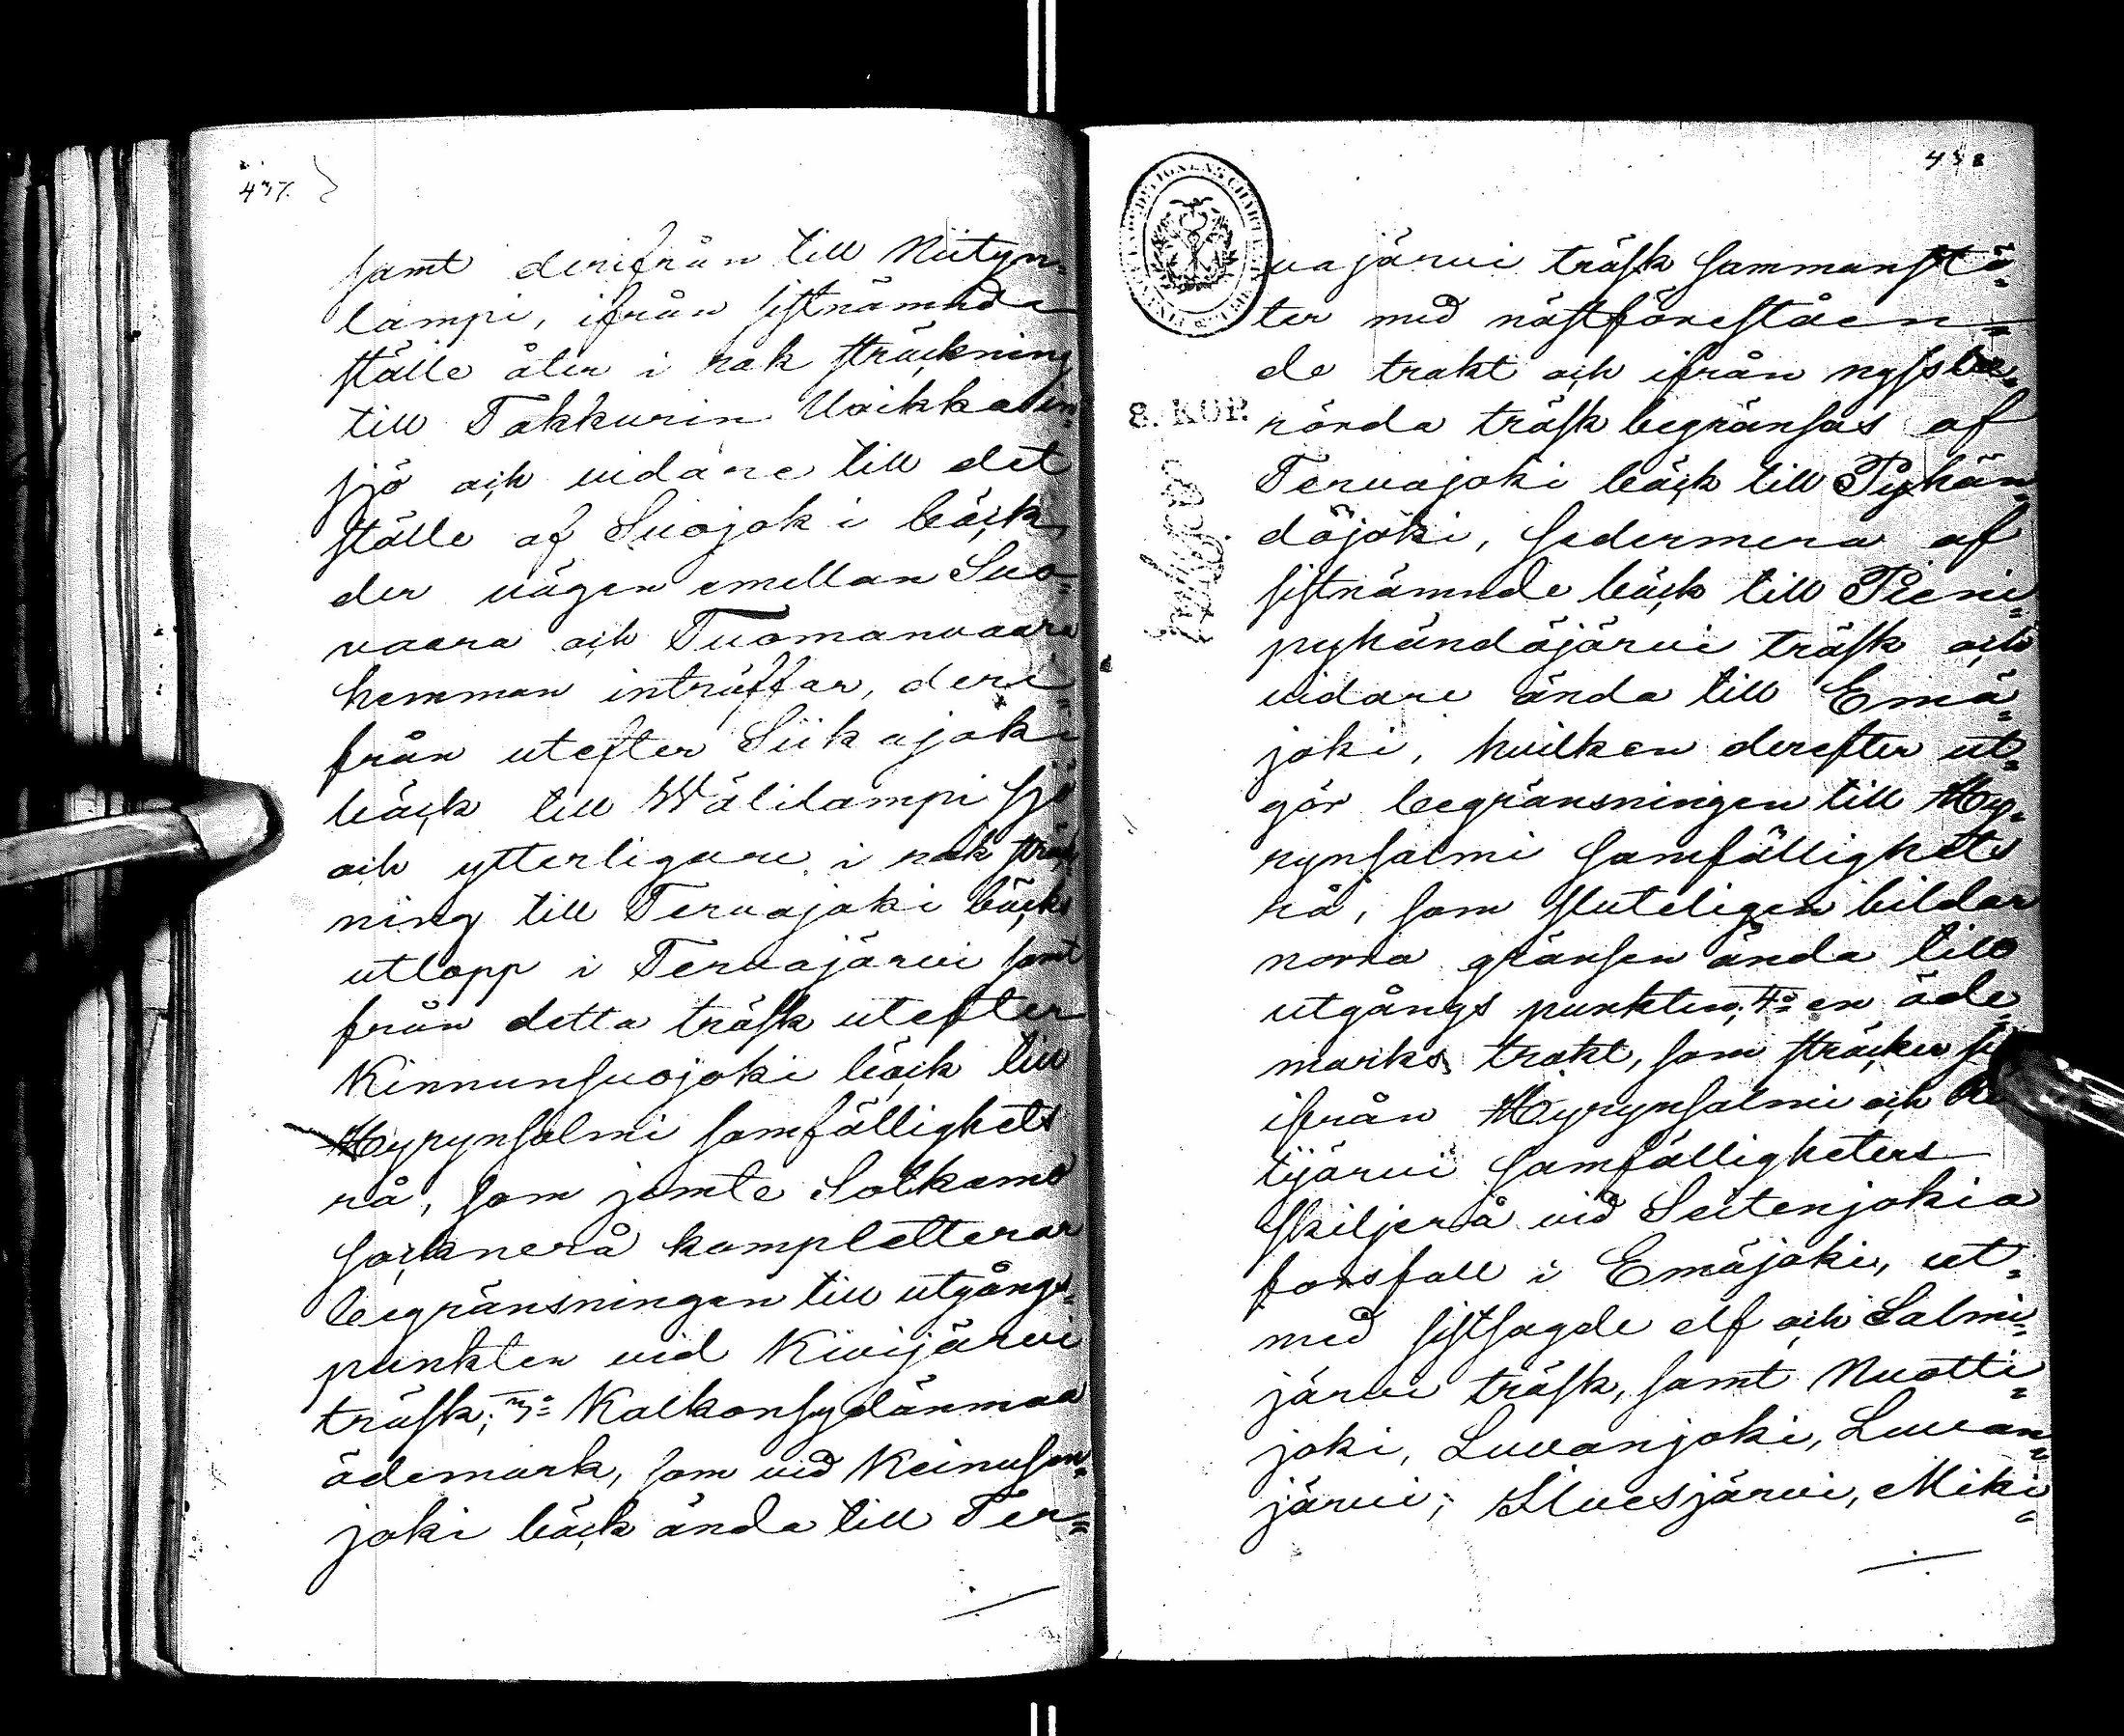 437.
samt derifrån till Niityn=
lampi, ifrån sistnämnda
ställe åter i rak sträckning
till Takkurin Uoikka lin=
sjö och vidare till det
ställe af Suojoki bäck,
der vägen emellan Suo=
vaara och Tuomanvaara
hemman inträffar, deri=
från utefter Siikajoki
bäck till Wälilampi sjö
och ytterligare i rak sträck
ning till Tervajoki bäcks
utlopp i Tervajärvi samt
från detta träsk utefter
Kinnunsuojoki bäck till
Hyrynsalmi samfällighets
rå, som jemte Sotkamo
sockne rå kompletterar
begränsningen till utgångs=
punkten vid Kivijärvi
träsk; 3:o Kalkonsydänmaa
ödemark, som vid Keinusen=
joki bäck ända till Ter=
438
8. KOP.
vajärvi träsk sammanstö=
ter med nästförestáen=
de trakt och ifrån nyssbe=
rörda träsk begränsas af
Tervajoki bäck till Pyhän=
döjoki, sedermera af
sistnämnde bäck till Pieni=
pyhändöjärvi träsk och
vidare ända till Emä=
joki, hvilken derefter ut=
gör begränsningen till Hy=
rynsalmi samfällighets
rå, som sluteligen bildar
norra gränsen ända till
utgångs punkten; 4:o en öde=
marks trakt, som sträcker sig
ifrån Hyrynsalmi och Ri
tijärvi samfälligheters
skiljerå vid Seitenjokia
forsfall i Emäjoki, ut=
med sistsagde elf och Salmi=
järvi träsk, samt Nuotti=
joki, Luvanjoki, Luvan=
järvi; Iluesjärvi, Miki=